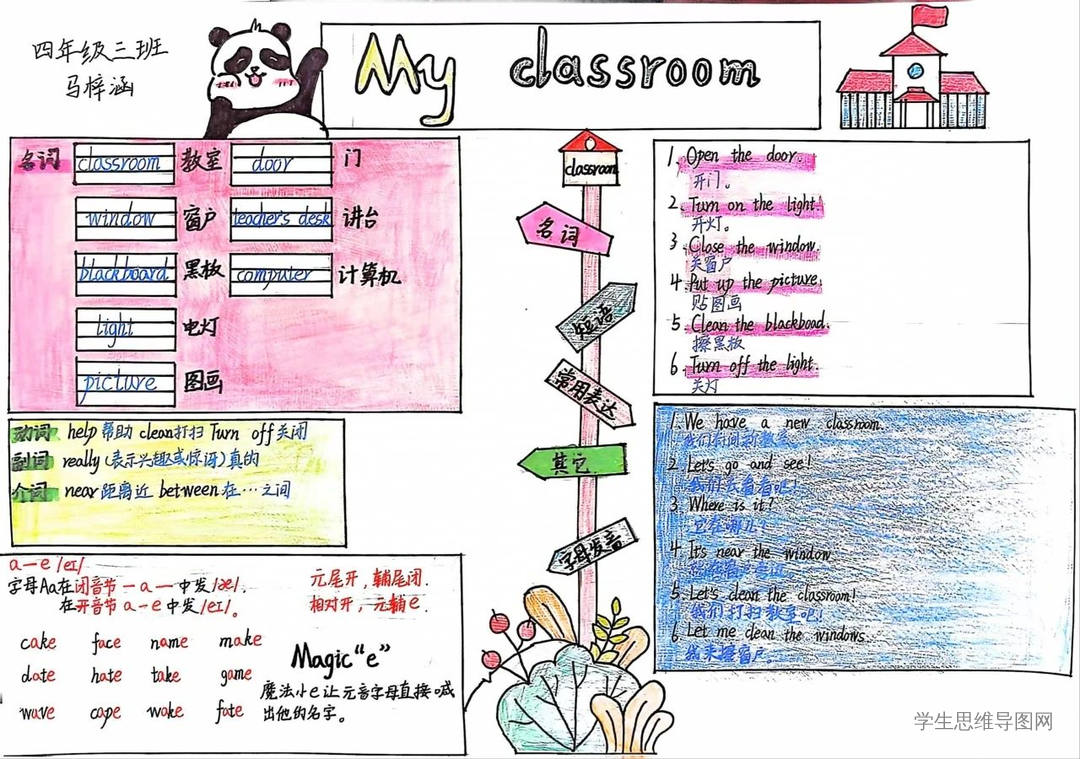 四年级三班
马梓涵
My classroom
名词 classroom 教室 door 门
window 窗户 teacher's desk 讲台
blackboard 黑板 computer 计算机
light 电灯
picture 图画
动词 help 帮助 clean 打扫 Turn off 关闭
副词 really (表示兴趣或惊讶) 真的
介词 near 距离近 between 在…之间
a-e /eɪ/
字母Aa在闭音节-a-中发/æ/.
在开音节a-e中发/eɪ/。
元尾开，辅尾闭.
相对开，元辅e.
cake face name make
date hate take game
wave cape wake fate
Magic "e"
魔法小e让元音字母直接喊
出他的名字。
classroom
名词
短语
常用表达
其它
字母发音
1. Open the door.
开门。
2. Turn on the light!
开灯。
3. Close the window.
关窗户
4. Put up the picture.
贴图画
5. Clean the blackboad.
擦黑板
6. Turn off the light.
关灯
1. We have a new classroom.
我们有间新教室。
2. Let's go and see!
我们去看看吧!
3. Where is it?
它在哪儿?
4. It's near the window.
5. Let's clean the classroom!
我们打扫教室吧!
6. Let me clean the windows.
我来擦窗户。
学生思维导图网